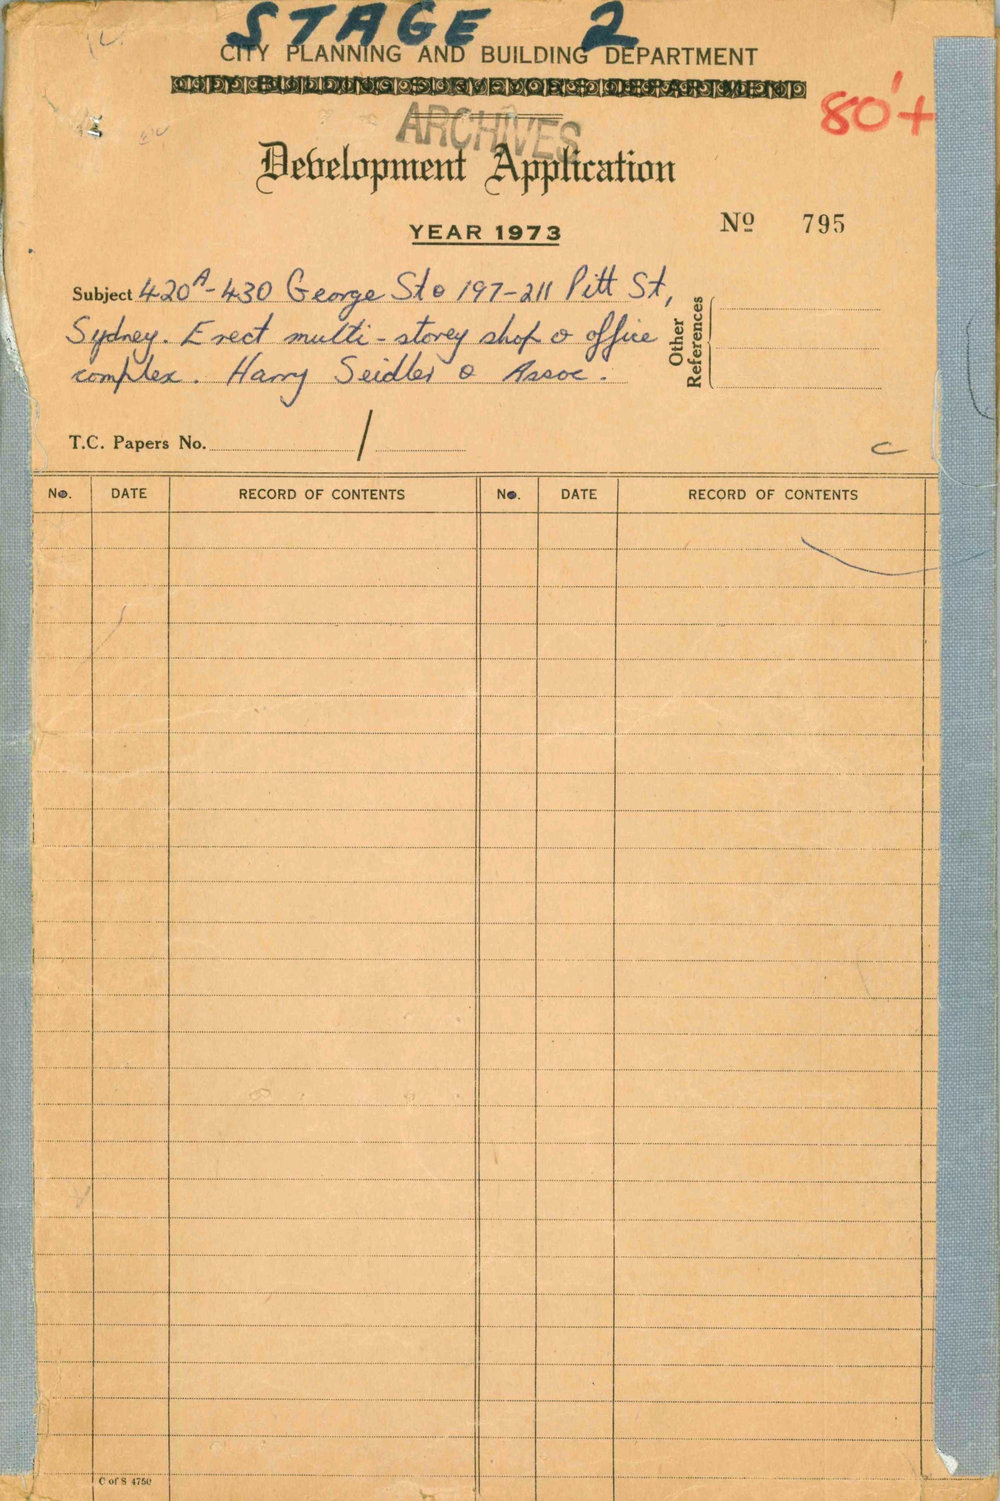 STAGE 2
CITY PLANNING AND BUILDING DEPARTMENT
CITY BUILDING SURVEYOR'S DEPARTMENT
80'+
ARCHIVES
Development Application
YEAR 1973
Nº 795
Subject 420A-430 George St & 197-211 Pitt St,
Sydney. Erect multi-storey shop & office
complex. Harry Seidler & Assoc.
Other
References
T.C. Papers No. /
C
No. DATE RECORD OF CONTENTS No. DATE RECORD OF CONTENTS
C of S 4750